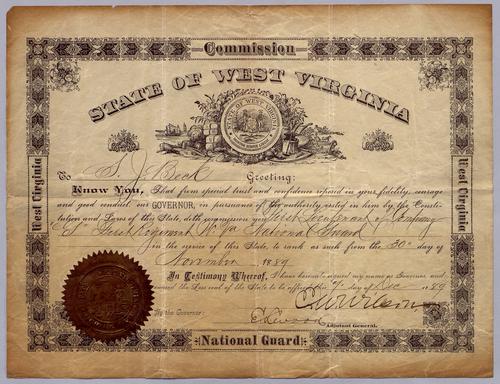 Commission
STATE OF WEST VIRGINIA
STATE OF WEST VIRGINIA
West Virginia
West Virginia
To S. J. Beck Greeting:
Know You, That from special trust and confidence reposed in your fidelity, courage
and good conduct, our GOVERNOR, in pursuance of the authority vested in him by the Consti-
tution and Laws of this State, doth commission you First Lieutenant of Company
First Regiment W. Va. National Guard
in the service of this State, to rank as such from the 30" day of
November 1889
In Testimony Whereof, I have hereunto signed my name as Governor and
caused the Less seal of the State to be affixed this day of Dec 1889
E. W. Wilson
By the Governor:
Adjutant General.
National Guard